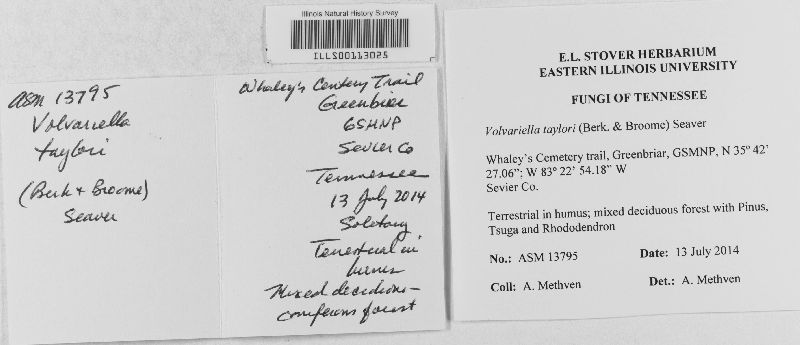 Illinois Natural History Survey
ILLS00113025
ASM 13795
Volvariella
taylori
(Berk & Broome)
Seaver
Whaley's Cemetery Trail
Greenbrier
GSMNP
Sevier Co
Tennessee
13 July 2014
Solitary
Terrestrial in
humus
Mixed deciduous-
coniferous forest
E.L. STOVER HERBARIUM
EASTERN ILLINOIS UNIVERSITY
FUNGI OF TENNESSEE
Volvariella taylori (Berk. & Broome) Seaver
Whaley's Cemetery trail, Greenbriar, GSMNP, N 35° 42'
27.06"; W 83° 22' 54.18" W
Sevier Co.
Terrestrial in humus; mixed deciduous forest with Pinus,
Tsuga and Rhododendron
No.: ASM 13795 Date: 13 July 2014
Coll: A. Methven Det.: A. Methven